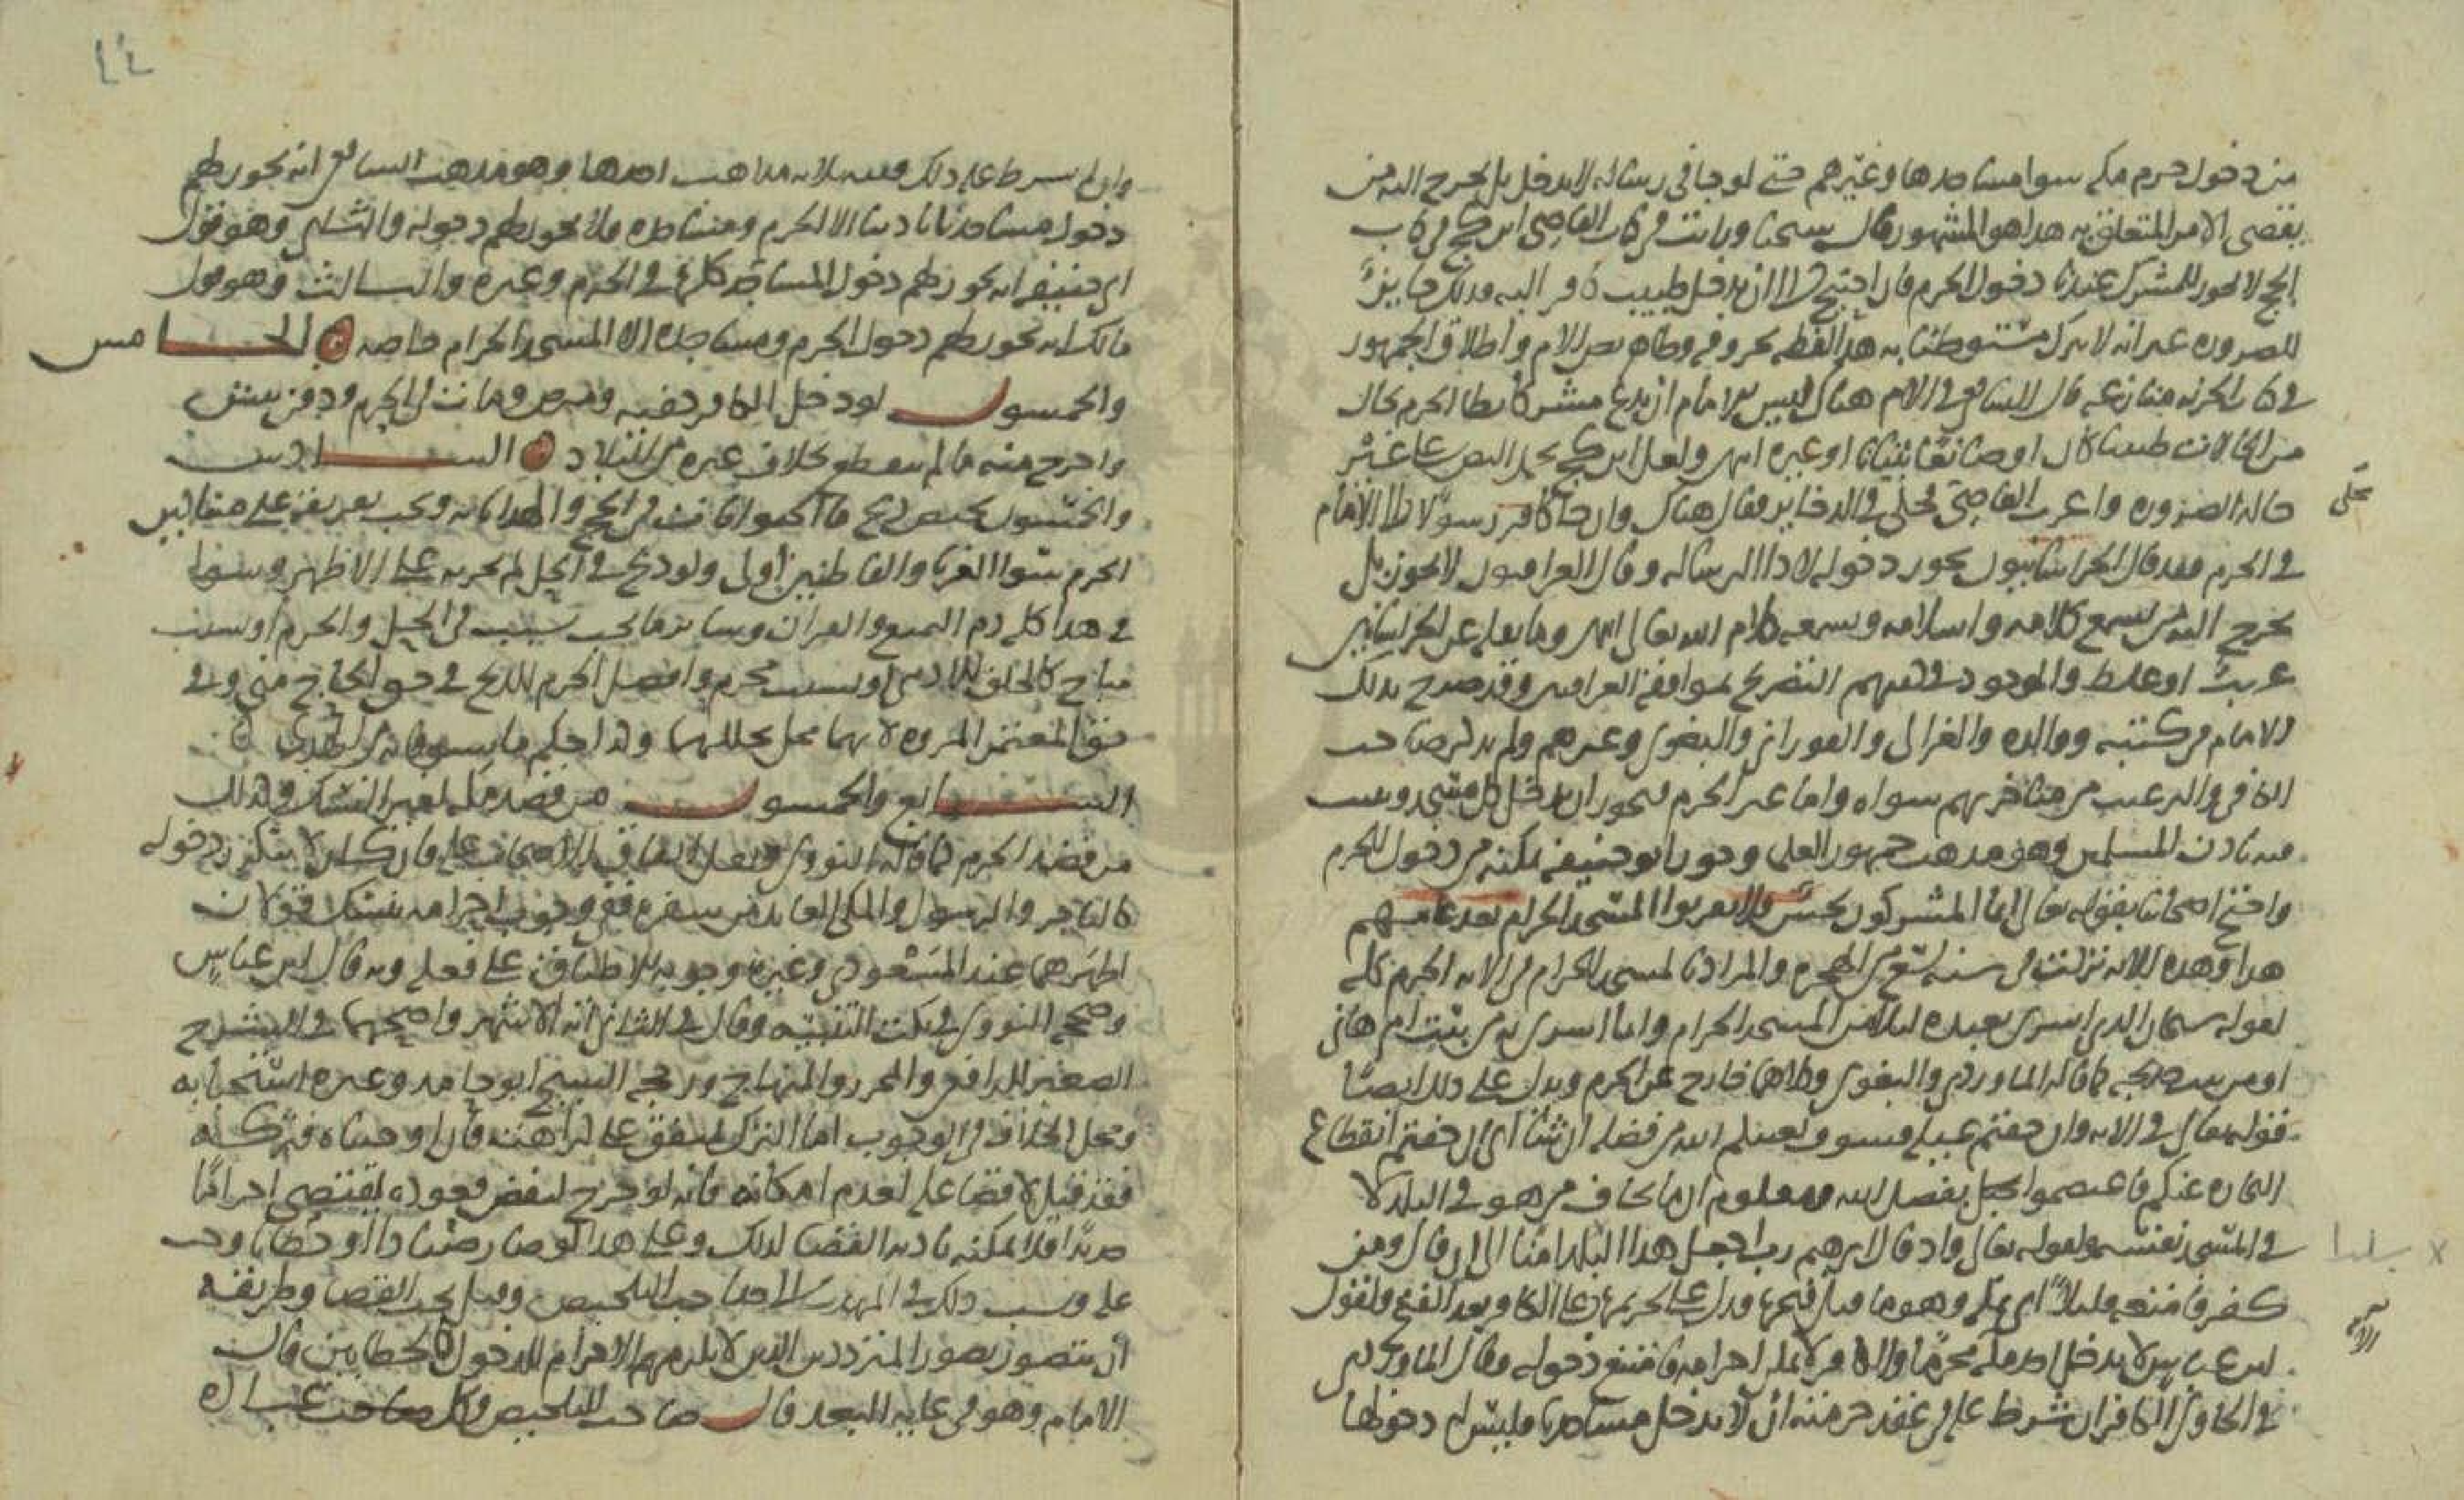 من دخول حرم مكه سوا مساجدها وغيرهم حتى لو جا في رساله لا يدخل بل يخرج اليه من
يقضى الامر المتعلق به هذا هو المشهور قال شيخنا ورايت في كتاب القاضي ابن كج في كتاب
الحج لا يجوز للمشرك عندنا دخول الحرم فان احتيج الى ان يدخل طبيب كافر اليه فذلك جايز
للضروره غير انه لا يترك مستوطنا به هذا لفظه بحروفه وظاهر نص الام واطلاق الجمهور
في كتاب الجزيه منازعه قال الشافعي في الام هناك ليس للامام ان يدع مشركا يطا الحرم بحال
من الحالات طبيبا كان او صانعا بنيانا او غيره انتهى ولعل ابن كج يحمل النص على غير
حاله الضروره واغرب القاضي مجلي في الذخاير فقال هناك وان جا كافر رسولا الى الامام
في الحرم فقد قال الخراسانيون يجوز دخوله لادا الرساله وقال العراقيون لا يجوز بل
يخرج اليه من يسمع كلامه واسلامه ويسمعه كلام الله تعالى انتهى وما نقله عن الخراسانيين
غريب او غلط والموجود في كتبهم التصريح بموافقه العراقيين وقد صرح بذلك
الامام في كتبه ووالده والغزالي والفوراني والبغوي وغيرهم ولم يذكر صاحب
الكافي والترغيب من متاخريهم سواه واما غير الحرم فيجوز ان يدخل كل مسجد ويبيت
فيه باذن المسلمين وهو مذهب جمهور العلما وجوز ابو حنيفه تمكينه من دخول الحرم
واحتج اصحابنا بقوله تعالى انما المشركون نجس فلا يقربوا المسجد الحرام بعد عامهم
هذا وهذه الايه نزلت في سنه تسع من الهجره والمراد بالمسجد الحرام في الايه الحرم كله
لقوله سبحان الذي اسرى بعبده ليلا من المسجد الحرام وانما اسري به من بيت ام هاني
او من بيت خديجه كما قاله الماوردي والبغوي وكلاهما خارج عن الحرم ويدل على ذلك ايضا
قوله تعالى في الايه وان خفتم عيله فسوف يغنيكم الله من فضله ان شا اي ان خفتم انقطاع
التجاره عنكم فاعتصموا بفضل الله ومعلوم ان ما يخاف من هو في البلد لا
في المسجد نفسه ولقوله تعالى واذ قال ابرهيم رب اجعل هذا البلد امنا الى ان قال ومن
كفر فامتعه قليلا اي بمكه وهو ما قبل فتحها فدل على تحريمها على الكافر بعد الفتح ولقول
ابن عباس لا يدخل احد مكه محرما والكافر لا يمكن احرامه فامتنع دخوله وقال الماوردي
في الحاوي الكافر ان شرط عليه في عقد جزيته ان لا يدخل مساجدنا فليس له دخولها
مجلي
بلدا
الايه
٤٤
وان لم يشرط عليه ذلك ففيه ثلاثه مذاهب احدها وهو مذهب الشافعي انه يجوز لهم
دخول مساجدنا باذننا الا الحرم ومساجده فلا يجوز لهم دخوله والثاني وهو قول
ابي حنيفه انه يجوز لهم دخول المساجد كلها في الحرم وغيره والثالث وهو قول
مالك انه يجوز لهم دخول الحرم ومساجده الا المسجد الحرام خاصه الخامس
والخمسون لو دخل الكافر خفيه ومرض ومات في الحرم ودفن نبش
واخرج منه ما لم يتقطع بخلاف غيره من البلاد السادس
والخمسون يختص ذبح ما الحيوانات في الحج والهدايا به ويجب تفريقه على مساكين
الحرم سوا الغربا والقاطنين اولى ولو ذبح في الحل لم يجزيه على الاظهر وسوا
في هذا كله دم التمتع والقران وساير ما يجب بسبب في الحل والحرم او بسبب
مباح كالحلق للاذى او بسبب محرم وافضل الحرم للذبح في حق الحاج منى وفي
حق المعتمر المروه لانهما محل تحللهما وكذا حكم ما يسوقانه من الهدي
السابع والخمسون من قصد مكه لغير النسك وكذلك
من قصد الحرم كما قاله النووي ونقل اتفاق الاصحاب عليه فان كان لا يتكرر دخوله
كالتاجر والرسول والمكي العايد من سفره ففي وجوب احرامه بنسك قولان
اظهرهما عند المسعودي وغيره وجوبه للاطباق على فعله وبه قال ابن عباس
وصححه النووي في نكت التنبيه وقال في الثاني انه الاشهر واصحهما في الشرح
الصغير للرافعي والمحرر والمنهاج ورجحه الشيخ ابو حامد وغيره استحبابه
ومحل الخلاف في الوجوب اما الترك فمتفق على كراهته فان اوجبناه فتركه
فقد قيل لا قضا عليه لعدم امكانه فانه لو خرج ليقضي فعوده يقتضي احراما
جديدا فلا يمكنه تادية القضا لذلك وعلى هذا لو صار حطابا وجب
عليه ونسب ذلك في المهذب الى صاحب التلخيص وقيل يجب القضا وطريقه
ان يتصور بصور المترددين الذين لا يلزمهم الاحرام للدخول كالحطابين قال
الامام وهو في غايه البعد قال صاحب التلخيص وكل عباده